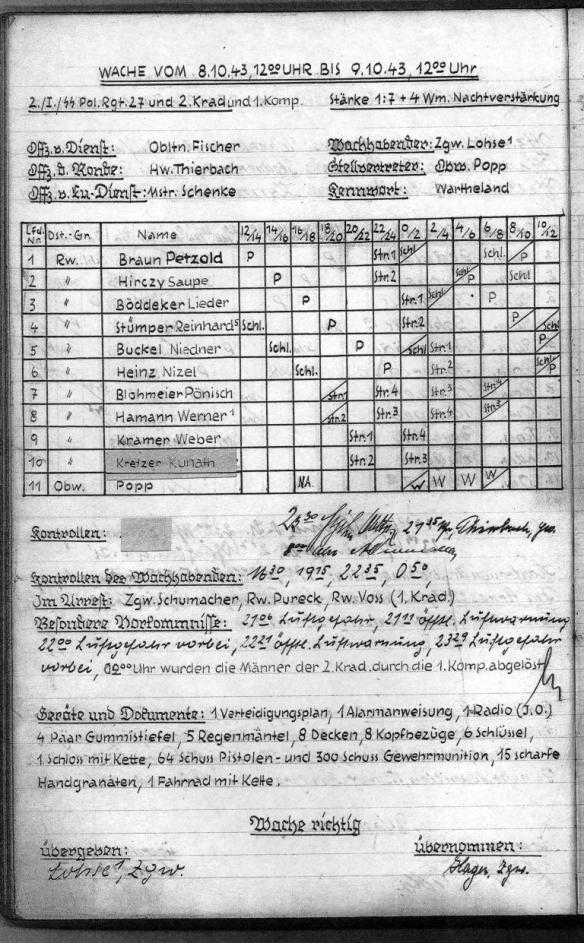 WACHE VOM 8.10.43, 12⁰⁰ UHR BIS 9.10.43, 12⁰⁰ Uhr
2./I./SS Pol. Rgt. 27 und 2. Krad und 1. Komp. Stärke 1:7 + 4 Wm. Nachtverstärkung
Offz. v. Dienst: Obltn. Fischer Wachhabender: Zgw. Lohse¹
Offz. d. Ronde: Hw. Thierbach Stellvertreter: Obw. Popp
Offz. v. Lu-Dienst: Mstr. Schenke Kennwort: Wartheland
Lfd. Nr. Dst.-Gr. Name 12/14 14/16 16/18 18/20 20/22 22/24 0/2 2/4 4/6 6/8 8/10 10/12
1 Rw. Braun Petzold P Str.1 Schl Schl. P
2 " Hirczy Saupe P Str.2 Schl P Schl
3 " Böddeker Lieder P Str.1 Schl P
4 " Stümper Reinhard⁵ Schl. P Str.2 P Schl
5 " Buckel Niedner Schl. P Schl Str.1 P
6 " Heinz Nizel Schl. P Str.2 Schl P
7 " Blohmeier Pönisch Str.1 Str.4 Str.3 Str.4
8 " Hamann Werner¹ Str.2 Str.3 Str.4 Str.3
9 " Kramer Weber Str.1 Str.4
10 " Kretzer Kunath Str.2 Str.3
11 Obw. Popp NA. W W W W
Kontrollen: 23³⁰ 21³⁵
Kontrollen des Wachhabenden: 16³⁰, 19¹⁵, 22³⁵, 0⁵⁰
Im Arrest: Zgw. Schumacher, Rw. Pureck, Rw. Voss (1. Krad.)
Besondere Vorkommnisse: 21⁰⁶ Luftgefahr, 21¹¹ öfftl. Luftwarnung
22⁰⁰ Luftgefahr vorbei, 22²¹ öfftl. Luftwarnung, 23²⁹ Luftgefahr
vorbei, 0⁰⁰ Uhr wurden die Männer der 2. Krad. durch die 1. Komp. abgelöst
Geräte und Dokumente: 1 Verteidigungsplan, 1 Alarmanweisung, 1 Radio (J.O.)
4 Paar Gummistiefel, 5 Regenmäntel, 8 Decken, 8 Kopfbezüge, 6 Schlüssel,
1 Schloss mit Kette, 64 Schuss Pistolen- und 300 Schuss Gewehrmunition, 15 scharfe
Handgranaten, 1 Fahrrad mit Kette.
Wache richtig
übergeben: übernommen:
Lohse¹, Zgw. Hager, Zgw.